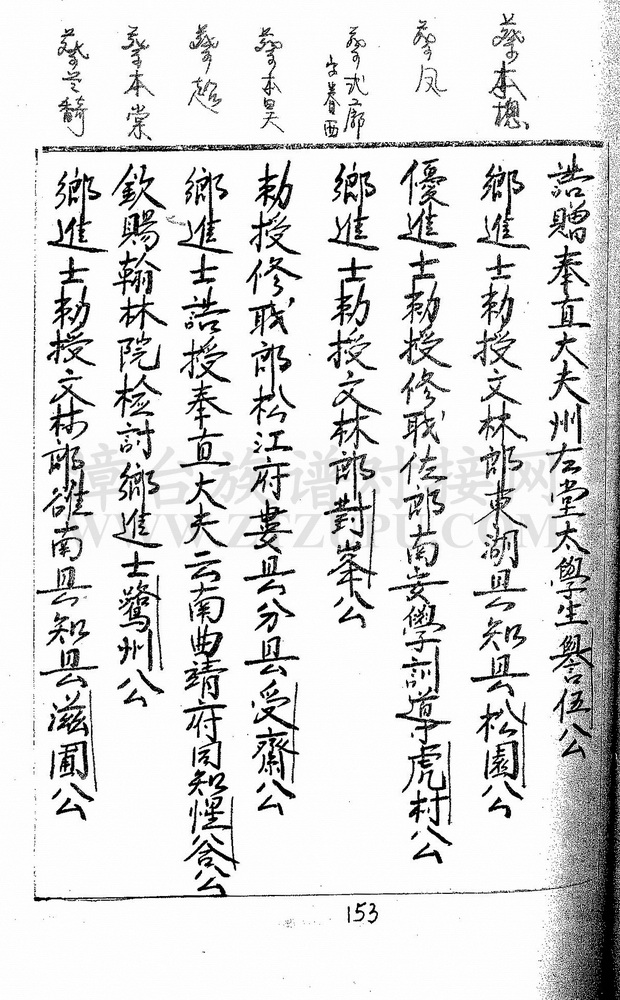 蔡本槐
蔡凤
蔡式廓
字眷西
蔡本昊
蔡超
蔡本棠
蔡兰馪
誥贈奉直大夫州左堂太學生譽伍公
鄉進士勅授文林郎東湖县知县松園公
優進士勅授修職佐郎南安學訓導虎村公
鄉進士勅授文林郎對峯公
勅授修職郎松江府婁县分县受齋公
鄉進士誥授奉直大夫云南曲靖府同知惺谷公
欽賜翰林院檢討鄉進士鷺州公
鄉進士勅授文林郎雒南县知县滋圃公
153
章台族谱对接网
WWW.ZTZUPU.COM